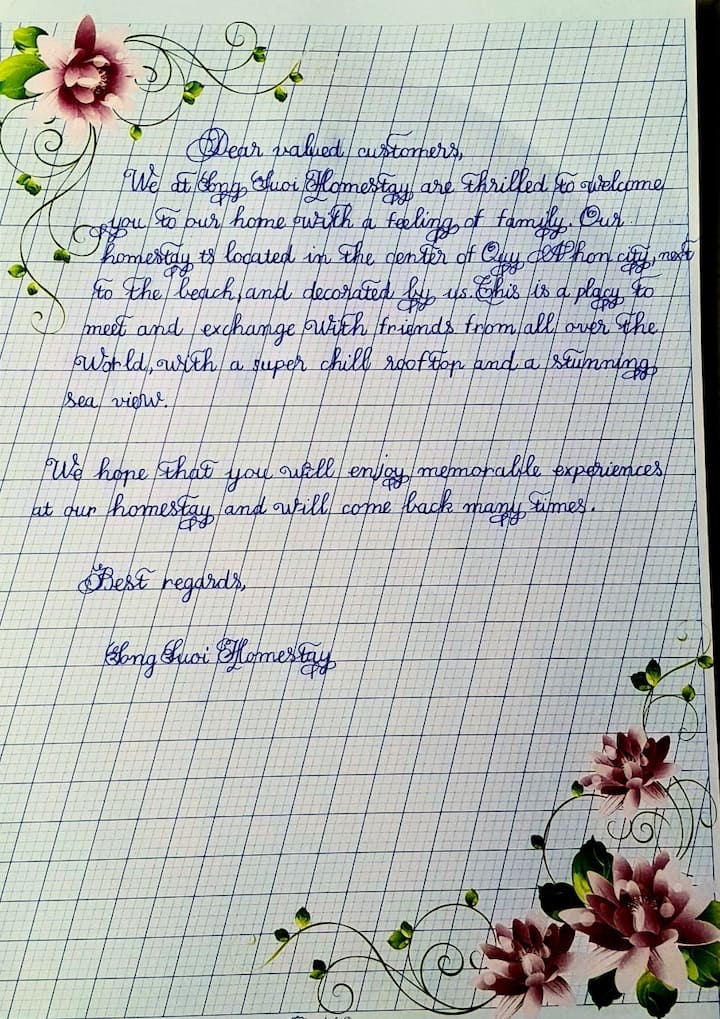 Dear valued customers,
We at Ong Suoi Homestay are thrilled to welcome
you to our home with a feeling of family. Our
homestay is located in the center of Quy Nhon city, next
to the beach, and decorated by us. This is a place to
meet and exchange with friends from all over the
World, with a super chill rooftop and a stunning
sea view.
We hope that you will enjoy memorable experiences
at our homestay and will come back many times.
Best regards,
Ong Suoi Homestay